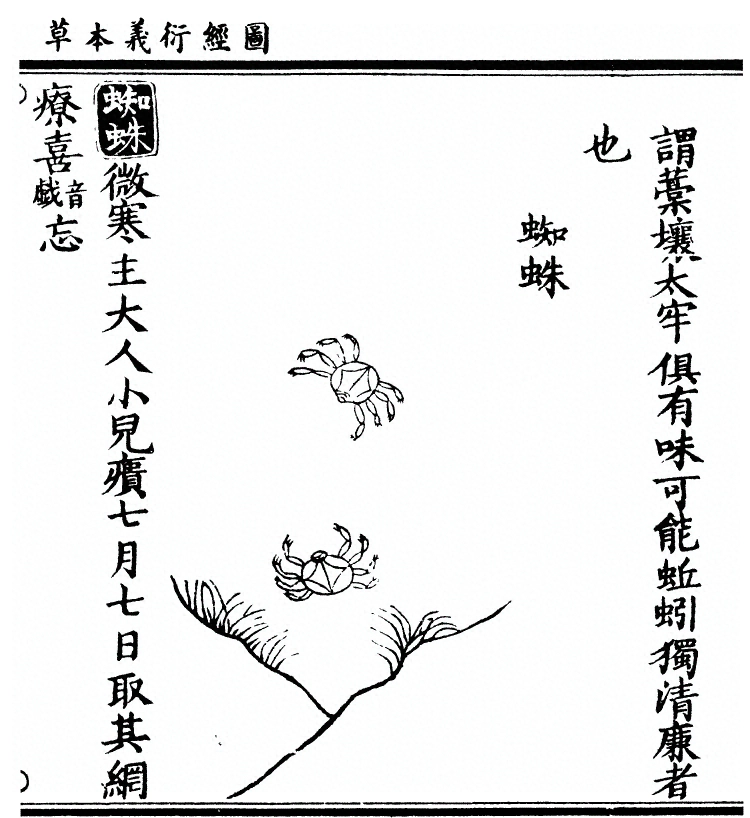 圖經衍義本草
謂藁壤太牢俱有味可能蚯蚓獨清廉者
也
蜘蛛
蜘蛛微寒主大人小兒㿉七月七日取其網
療喜音戱忘